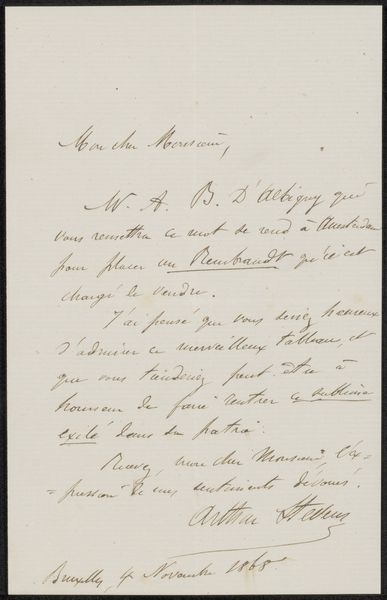 Mon cher Monsieur,
M. A. B. D'Albigny qui
vous remettra ce mot se rend à Amsterdam
pour placer un Rembrandt qu'il est
chargé de vendre.
J'ai pensé que vous seriez heureux
d'admirer ce merveilleux tableau, et
que vous tiendriez peut être à
honneur de faire rentrer ce sublime
exilé dans sa patrie.
Recevez, mon cher Monsieur, l'ex-
-pression de mes sentiments dévoués.
Arthur Stevens
Bruxelles, 4 Novembre 1868